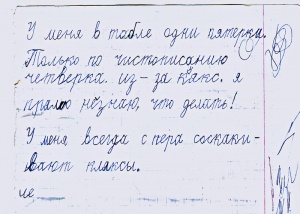 У меня в табле одни пятерки.
Только по чистописанию
четверка. из-за клякс. я
прямо незнаю, что делать!
У меня всегда с пера соскаки-
вают кляксы.